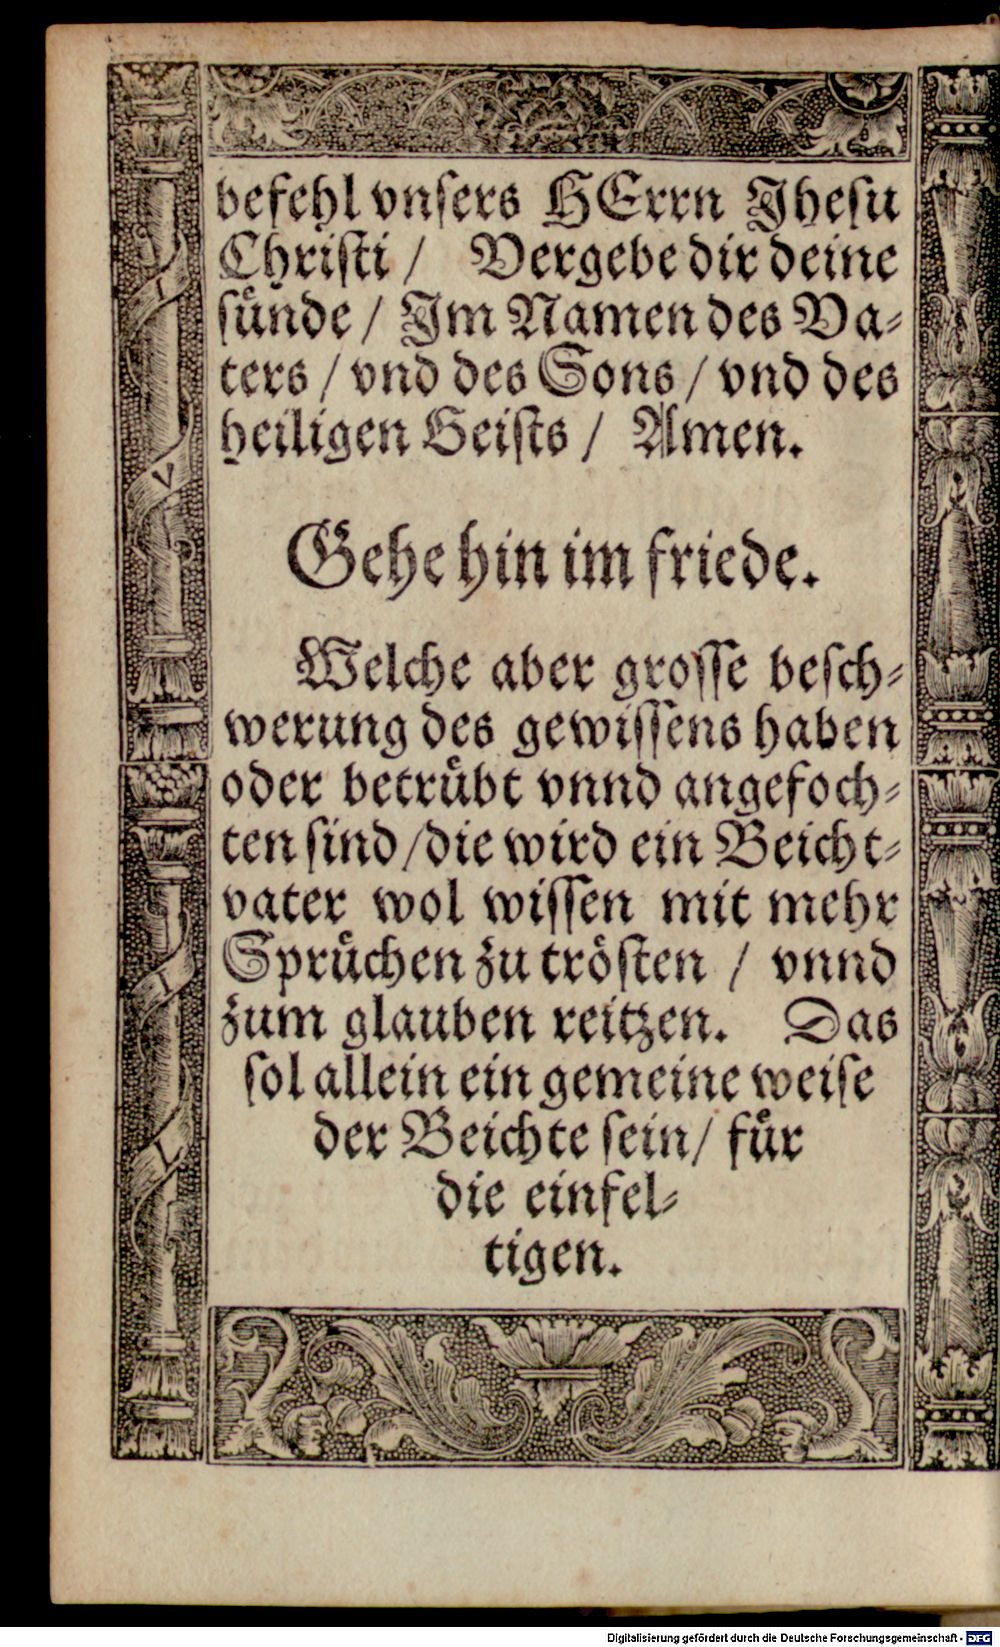 befehl vnsers HErrn Jhesu
Christi / Vergebe dir deine
sünde / Jm Namen des Va⸗
ters / vnd des Sons / vnd des
heiligen Geists / Amen.
Gehe hin im friede.
Welche aber grosse besch⸗
werung des gewissens haben
oder betrübt vnnd angefoch⸗
ten sind /die wird ein Beicht⸗
vater wol wissen mit mehr
Sprüchen zu trösten / vnnd
zum glauben reitzen. Das
sol allein ein gemeine weise
der Beichte sein / für
die einfel⸗
tigen.
Digitalisierung gefördert durch die Deutsche Forschungsgemeinschaft - DFG